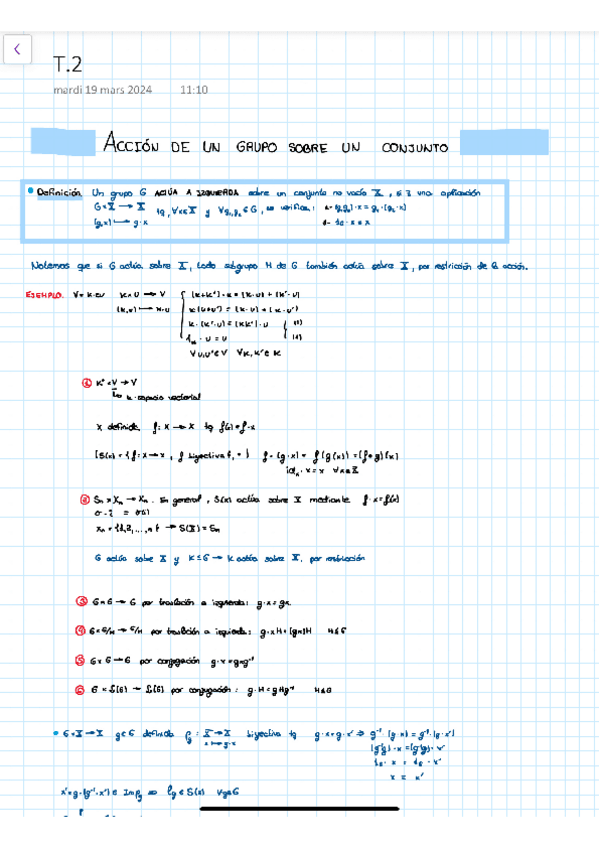 T.2
mardi 19 mars 2024 11:10
ACCIÓN DE UN GRUPO SOBRE UN CONJUNTO
Definición. Un grupo G ACTÚA A IZQUIERDA sobre un conjunto no vacío X, si ∃ una aplicación
G×X → X tq ∀x∈X y ∀g₁,g₂∈G, se verifica:
(g,x) ↦ g·x
Notemos que si G actúa sobre X, todo subgrupo H de G también actúa sobre X, por restricción de la acción.
EJEMPLO.
∀u,u'∈V ∀k,k'∈K
① K*×V → V
k-espacio vectorial
X definida, f: X → X tq f(x)=f·x
② Sn×Xn → Xn. En general, S(X) actúa sobre X mediante f·x=f(x)
Xn={1,2,...,n} → S(X)=Sn
G actúa sobre X y K≤G → K actúa sobre X, por restricción
③ G×G → G por traslación a izquierda: g·x=gx
④ G×G/H → G/H por traslación a izquierda: g·xH=(gx)H H≤G
⑤ G×G → G por conjugación g·x=gxg⁻¹
⑥ por conjugación: g·H=gHg⁻¹ H≤G
G×X → X g∈G definida bijectiva tq g·x=g·x' ⇒ g⁻¹·(g·x)=g⁻¹·(g·x')
(g⁻¹g)·x=(g⁻¹g)·x'
x = x'